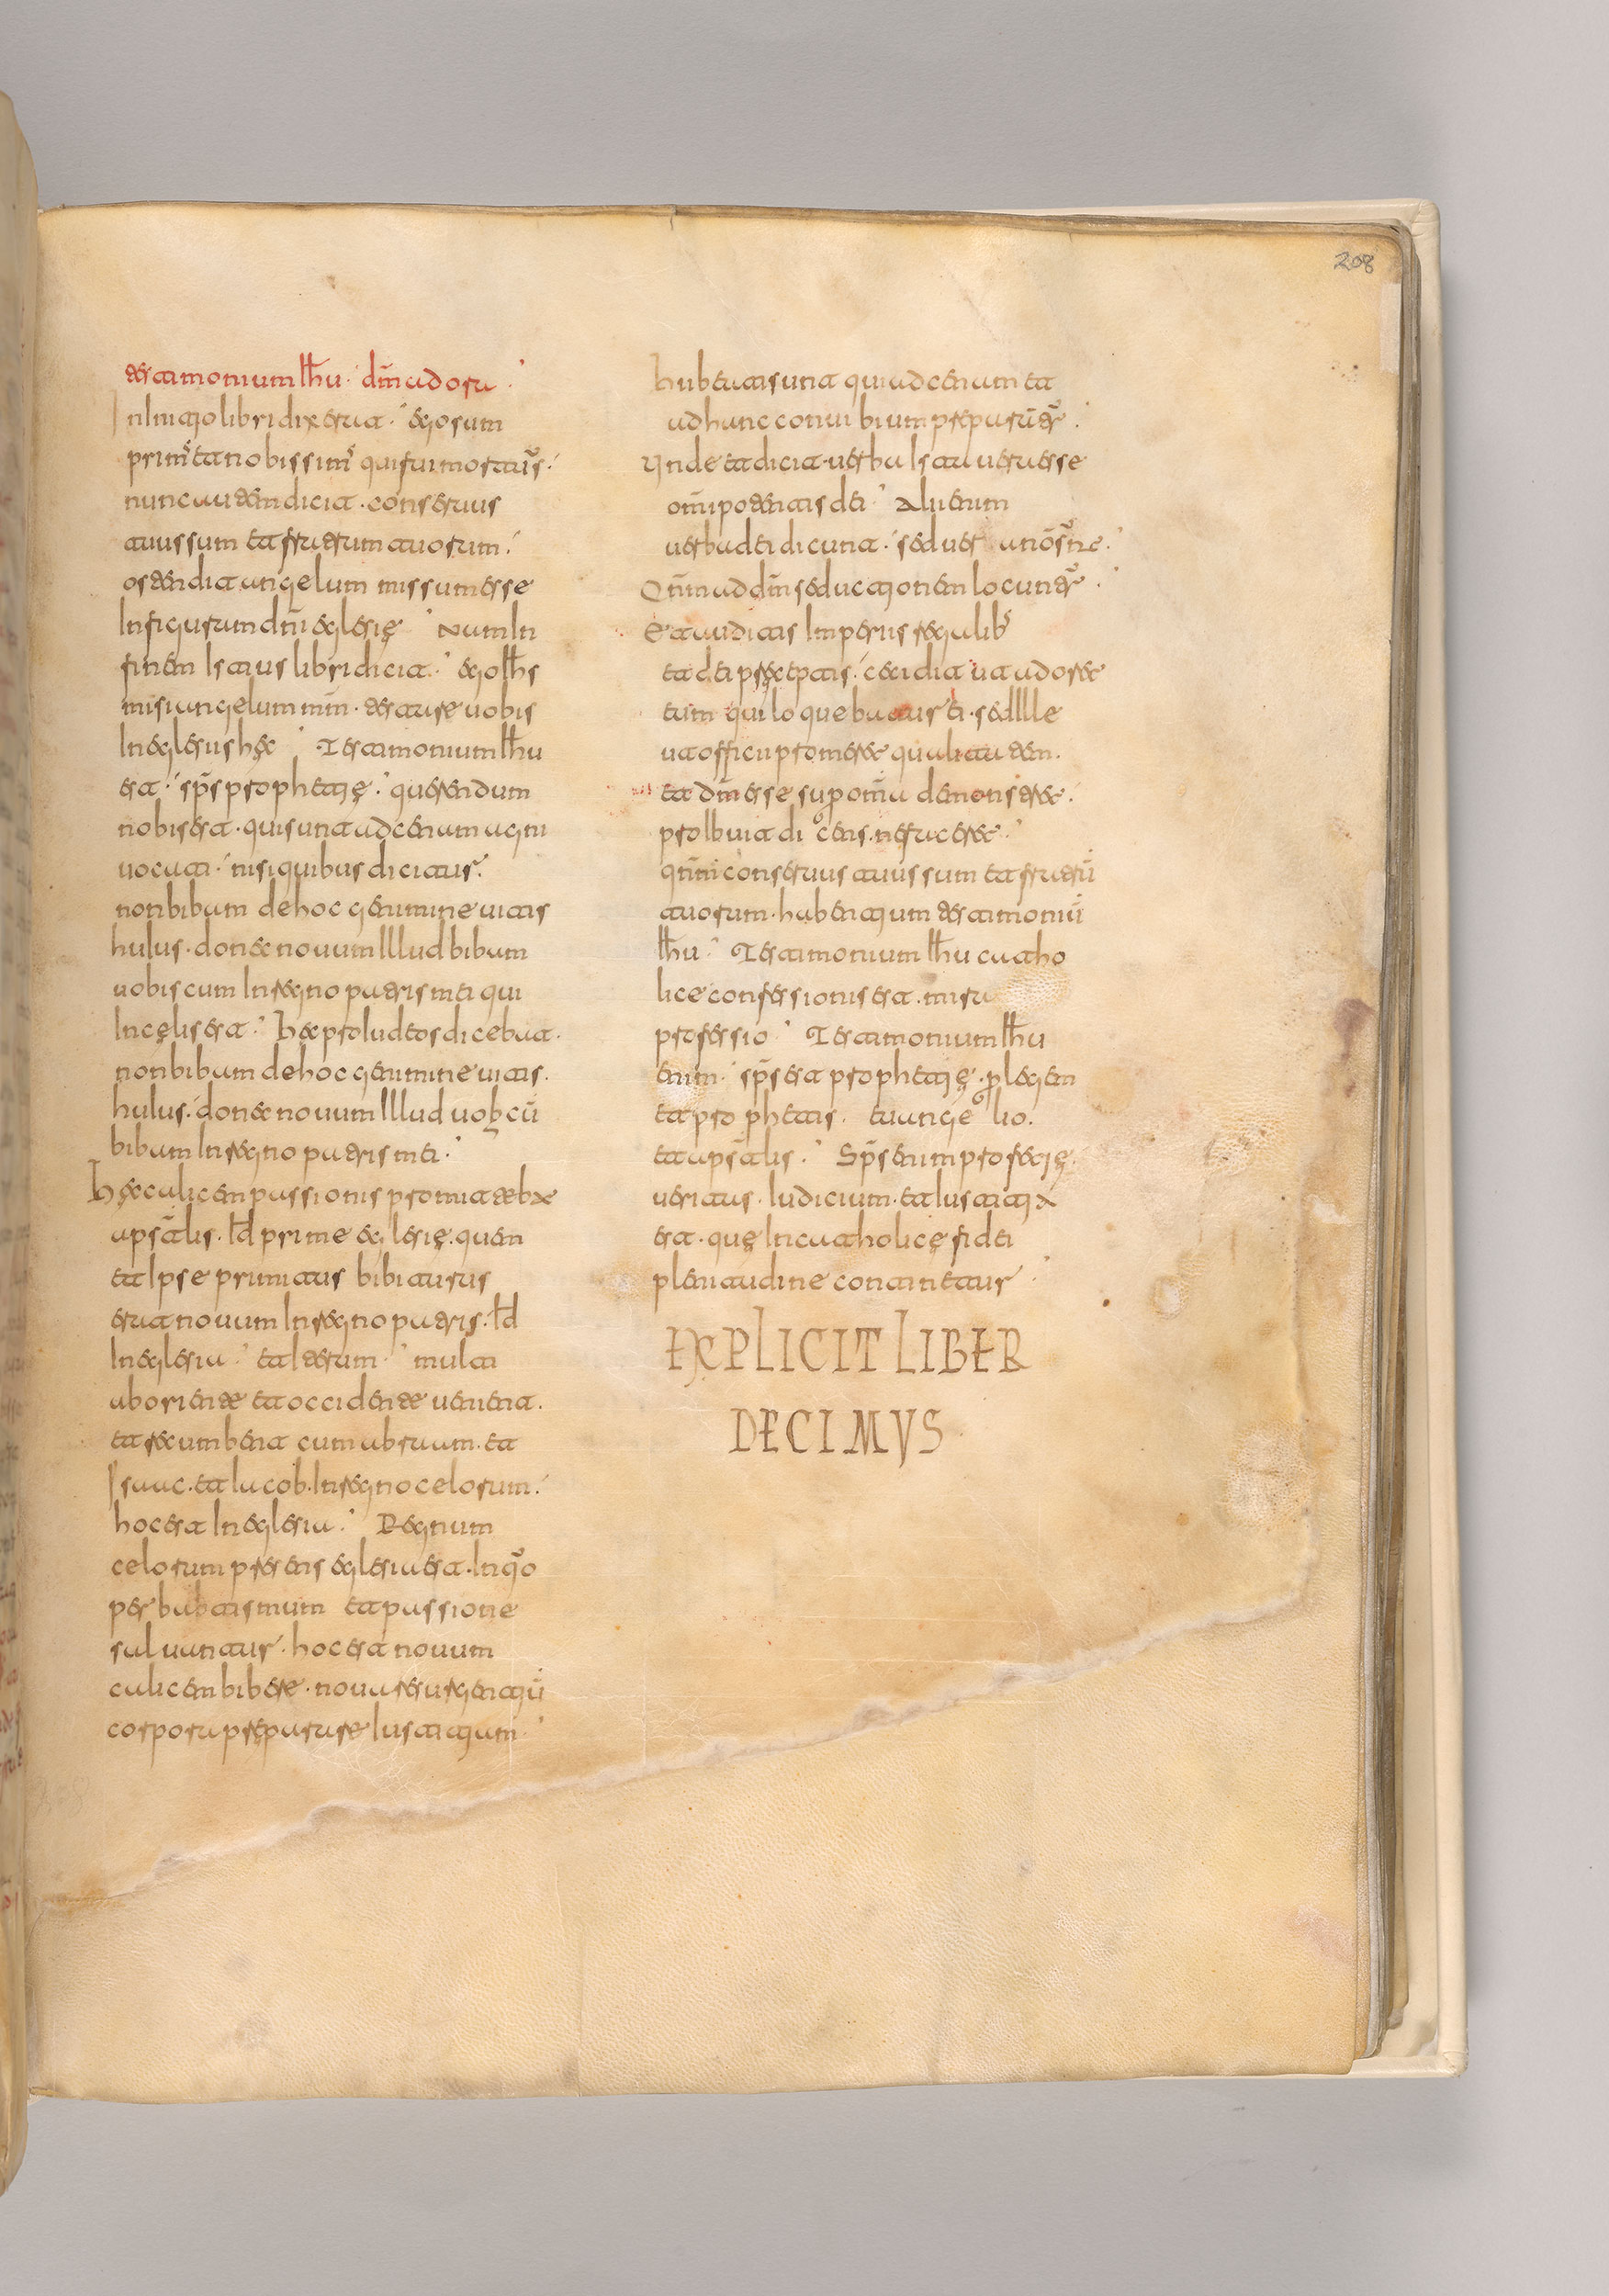 208
testimonium Ihu · dm̄ adora ·
In initio libri dixerat · ego sum
primꝰ et nobissimꝰ qui fui mortuꝰs ·
nunc autem dicit · conserbus
tuus sum et fratrum tuorum ·
ostendit angelum missum esse
In figuram dn̄i eglesię · Nam In
finem Istius libri dicit · ego Ihs
misi angelum mm̄ · testare uobis
In eglesiis hęc · Testimonium Ihu
est · sp̄s prophetię · querendum
nobis est · qui sunt ad cenam agni
uocati · nisi quibus dicitur
non bibam de hoc genimine uitis
huIus · donec nouum Illud bibam
uobiscum In regno patris mei qui
In cęlis est · hec pro Iudeos dicebat ·
non bibam de hoc genimine uitis ·
huIus · donec nouum Illud uobcū
bibam In regno patris mei ·
hęc calicem passionis promittebat
apsālis · Id prime eglesię · quem
et Ipse primitus bibiturus
erat nouum In regno patris · Id
In eglesia · et Iterum · multi
ab oriente et occidente uenient ·
et recumbent cum abraam · et
Isaac · et Iacob · In regno celorum ·
hoc est In eglesia · Regnum
celorum presens eglesia est · In quo
per babtismum et passione
saluantur · hoc est nouum
calicem bibere · noua resurgentiū
corpora preparare Iustitium ·
habetis unt qui ad cenam et
ad hunc conuibium preparātr ·
Unde et dicit · uerba Ista uera esse
om̄ipotentis dei · Alii enim
uerba dei dicunt · sed uer
Qn̄m ad dm̄ seductionem locuntr ·
et dei preceptis · cecidit ut adorare
eum qui loquebatur ei · sed Ille
ut officii promeree qualitatem ·
et dm̄ esse sup om̄ia demonstree ·
proIbuit dicens · ne facere ·
qn̄m conserbus tuus sum et fratrū
tuorum · habentium testimoniū
Ihu · Testimonium Ihu catho
lice confessionis est · mira
professio · Testimonium Ihu
enim · sp̄s est prophetię · p legem
et prophetis · euangelio ·
et apsālis · Sp̄s enim profetię
ueritas · Iudicium · et Iustitia
est · quę In catholicę fidei
plenitudine continetur ·
EXPLICIT LIBER
DECIMVS